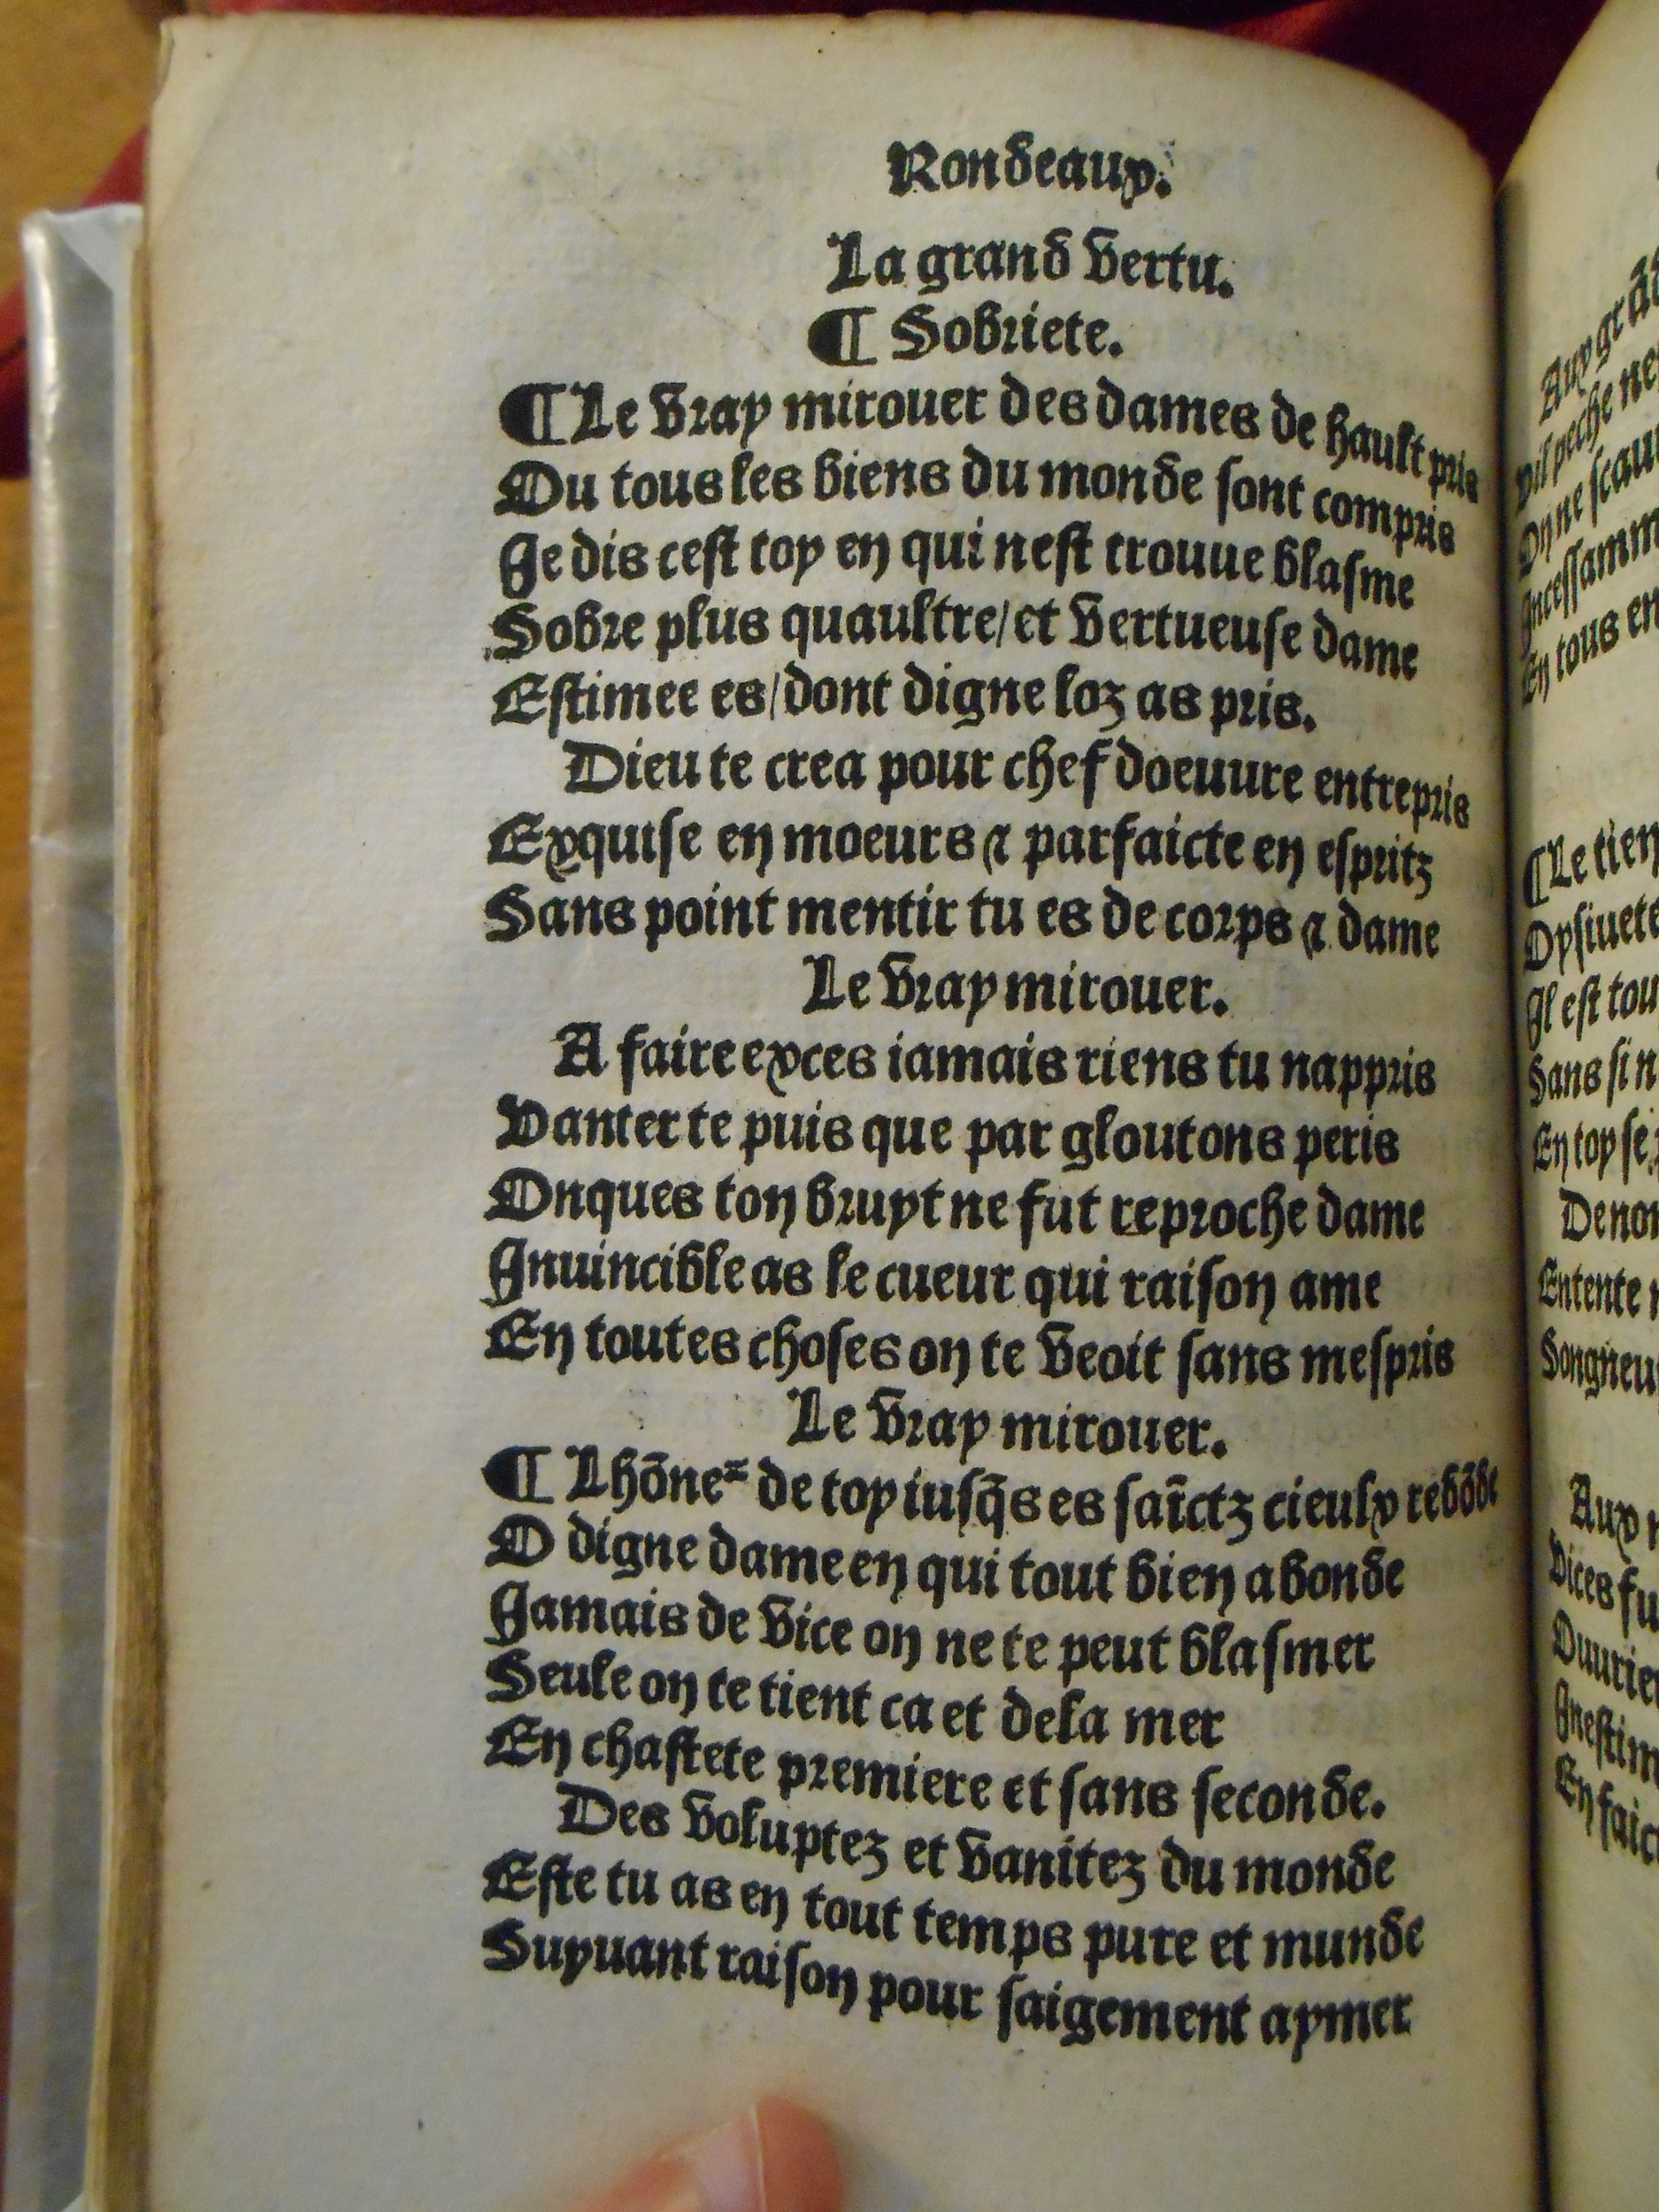 Rondeaux.
La grand vertu.
¶ Sobriete.
¶ Le vray mirouer des dames de hault pris
Ou tous les biens du monde sont compris
Je dis cest toy en qui nest trouue blasme
Sobre plus quaultre/et vertueuse dame
Estimee es/dont digne loz as pris.
Dieu te crea pour chef doeuure entrepris
Exquise en moeurs ⁊ parfaicte en espritz
Sans point mentir tu es de corps ⁊ dame
Le vray mirouer.
A faire exces iamais riens tu nappris
Vanter te puis que par gloutons peris
Onques ton bruyt ne fut reproche dame
Inuincible as le cueur qui raison ame
En toutes choses on te veoit sans mespris
Le vray mirouer.
¶ Lhōneᷣ de toy iusq̄s es saīctz cieulx redōde
O digne dame en qui tout bien abonde
Jamais de vice on ne te peut blasmer
Seule on te tient ca et dela mer
En chastete premiere et sans seconde.
Des voluptez et vanitez du monde
Este tu as en tout temps pure et munde
Suyuant raison pour saigement aymer
Il est tou
Sans si n
En toy se
Entente
En tous en
¶ Le tien
Oysiuete